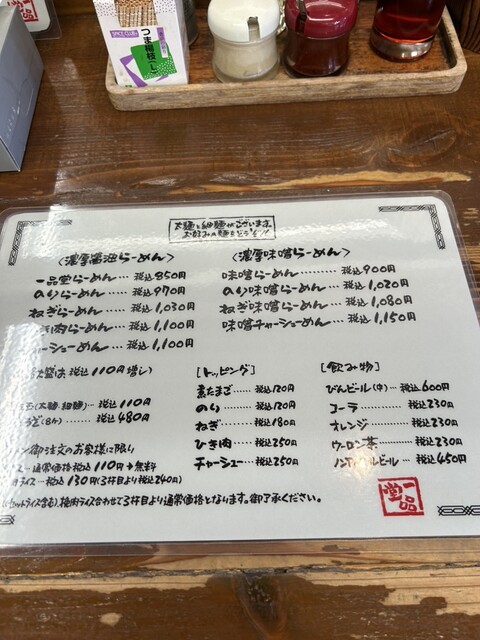 SPICE CLUB
つま楊枝(L)
太麺と細麺がございます。
お好みの麺をどうぞ!!
〈濃厚醤油らーめん〉
一品堂らーめん… 税込850円
のりらーめん… 税込970円
ねぎらーめん… 税込1,030円
き肉らーめん… 税込1,100円
ーシューめん… 税込1,100円
税込110円増し)
〈濃厚味噌らーめん〉
味噌らーめん…… 税込900円
のり味噌らーめん… 税込1,020円
ねぎ味噌らーめん… 税込1,080円
味噌チャーシューめん… 税込1,150円
玉(太麺、細麺)… 税込110円
税込480円
ン御注文のお客様に限り
通常価格税込110円→無料
ライス… 税込130円(3杯目より税込240円)
セットライス含む)、挽肉ライス合わせて3杯目より通常価格となります。御了承ください。
[トッピング]
煮たまご…… 税込120円
のり…… 税込120円
ねぎ…… 税込180円
ひき肉…… 税込250円
チャーシュー… 税込250円
[飲み物]
びんビール(中)… 税込600円
コーラ…… 税込230円
オレンジ…… 税込230円
ウーロン茶…… 税込230円
ビール… 税込450円
一品堂